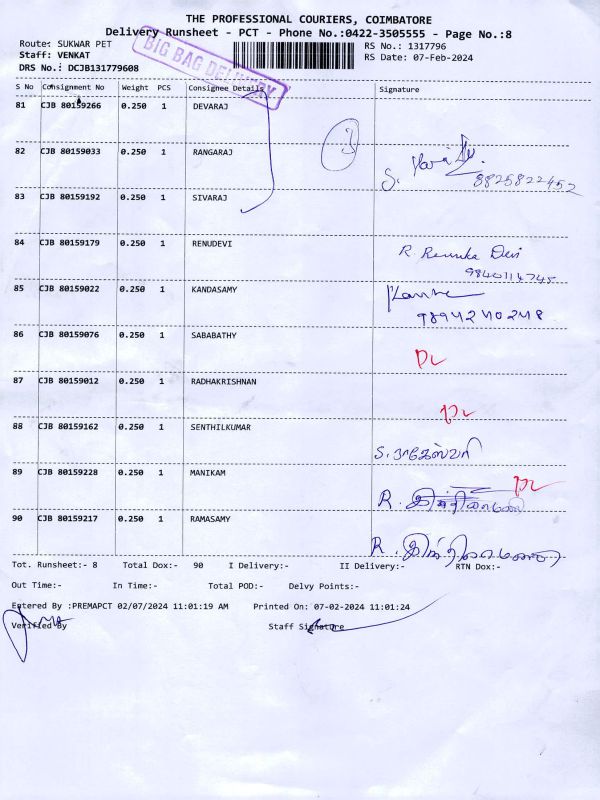 THE PROFESSIONAL COURIERS, COIMBATORE
Delivery Runsheet - PCT - Phone No.:0422-3505555 - Page No.:8
Route: SUKWAR PET
RS No.: 1317796
Staff: VENKAT
RS Date: 07-Feb-2024
DRS No.: DCJB131779608
BIG BAG DELIVERY
S No Consignment No Weight PCS Consignee Details Signature
81 CJB 80159266 0.250 1 DEVARAJ
82 CJB 80159033 0.250 1 RANGARAJ
S.
8825822452
83 CJB 80159192 0.250 1 SIVARAJ
84 CJB 80159179 0.250 1 RENUDEVI
R Renuka Devi
9840114745
85 CJB 80159022 0.250 1 KANDASAMY
98942 40248
86 CJB 80159076 0.250 1 SABABATHY
87 CJB 80159012 0.250 1 RADHAKRISHNAN
88 CJB 80159162 0.250 1 SENTHILKUMAR
S. ராகேஸ்வரி
89 CJB 80159228 0.250 1 MANIKAM
R.
90 CJB 80159217 0.250 1 RAMASAMY
R.
Tot. Runsheet:- 8 Total Dox:- 90 I Delivery:- II Delivery:- RTN Dox:-
Out Time:- In Time:- Total POD:- Delvy Points:-
Entered By :PREMAPCT 02/07/2024 11:01:19 AM Printed On: 07-02-2024 11:01:24
Verified By Staff Signature